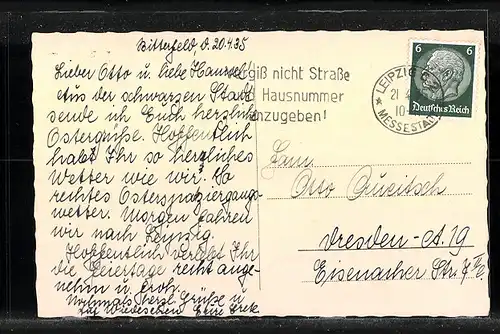 Bitterfeld d. 20.4.35
Lieber Otto u. liebe
Aus der schwarzen Stadt
sende ich Euch herzliche
Ostergrüße. Hoffentlich
habt Ihr so herzliches
Wetter wie wir. So
rechtes Osterspaziergangs-
wetter. Morgen fahren
wir nach Leipzig.
Hoffentlich verlebt Ihr
die Feiertage recht ange-
nehm u. froh.
Nochmals herzl. Grüße u.
auf Wiedersehen Eure Grete
giß nicht Straße
Hausnummer
nzugeben!
LEIPZIG
21.4.
10-
* MESSESTADT
6 6
Deutsches Reich
Otto
Dresden-A. 19
Eisenacher Str. 7